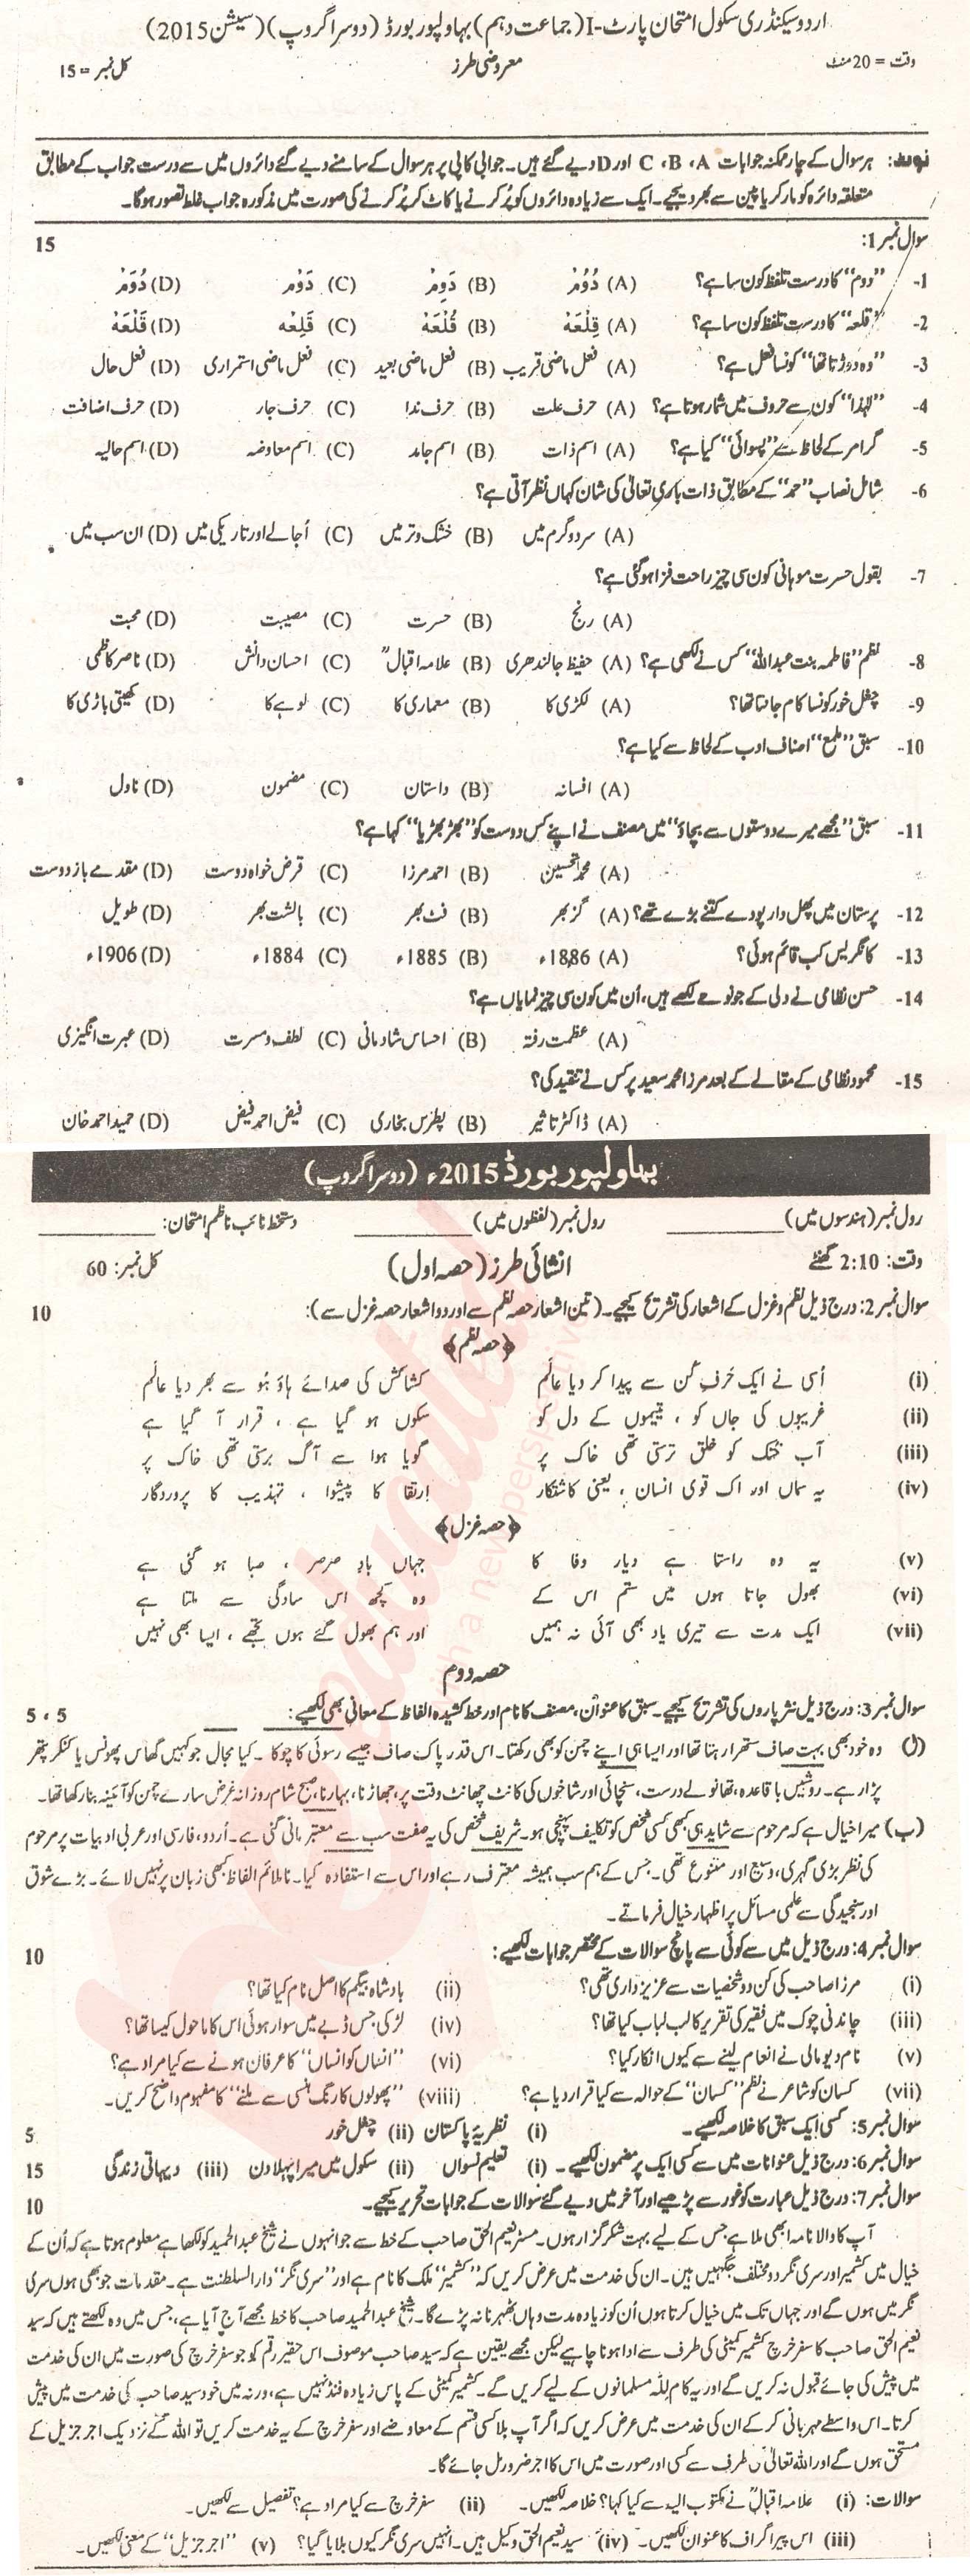 اردو سیکنڈری سکول امتحان پارٹ-I (جماعت دہم) بہاولپور بورڈ (دوسرا گروپ) (سیشن 2015)
وقت = 20 منٹ معروضی طرز کل نمبر = 15
نوٹ: ہر سوال کے چار ممکنہ جوابات A، B، C اور D دیے گئے ہیں۔ جوابی کاپی پر ہر سوال کے سامنے دیے گئے دائروں میں سے درست جواب کے مطابق
متعلقہ دائرہ کو مارکر یا پین سے بھر دیجیے۔ ایک سے زیادہ دائروں کو پُر کرنے یا کاٹ کر پُر کرنے کی صورت میں مذکورہ جواب غلط تصور ہوگا۔
سوال نمبر 1: 15
1- ”دوم“ کا درست تلفظ کون سا ہے؟ (A) دُوُمْ (B) دَوِمْ (C) دَوْم (D) دُوَمْ
2- ”قلعہ“ کا درست تلفظ کون سا ہے؟ (A) قِلْعَہْ (B) قُلْعَہْ (C) قَلِعْہ (D) قَلْعَہْ
3- ”وہ دوڑتا تھا“ کونسا فعل ہے؟ (A) فعل ماضی قریب (B) فعل ماضی بعید (C) فعل ماضی استمراری (D) فعل حال
4- ”لہٰذا“ کون سے حروف میں شمار ہوتا ہے؟ (A) حرف علت (B) حرف ندا (C) حرف جار (D) حرف اضافت
5- گرامر کے لحاظ سے ”پسوائی“ کیا ہے؟ (A) اسم ذات (B) اسم جامد (C) اسم معاوضہ (D) اسم حالیہ
6- شامل نصاب ”حمد“ کے مطابق ذات باری تعالیٰ کی شان کہاں نظر آتی ہے؟
(A) سرد و گرم میں (B) خشک و تر میں (C) اُجالے اور تاریکی میں (D) ان سب میں
7- بقول حسرت موہانی کون سی چیز راحت فزا ہو گئی ہے؟
(A) رنج (B) حسرت (C) مصیبت (D) محبت
8- نظم ”فاطمہ بنت عبداللہ“ کس نے لکھی ہے؟ (A) حفیظ جالندھری (B) علامہ اقبالؒ (C) احسان دانش (D) ناصر کاظمی
9- چغل خور کونسا کام جانتا تھا؟ (A) لکڑی کا (B) معماری کا (C) لوہے کا (D) کھیتی باڑی کا
10- سبق ”ملمع“ اصناف ادب کے لحاظ سے کیا ہے؟
(A) افسانہ (B) داستان (C) مضمون (D) ناول
11- سبق ”مجھے میرے دوستوں سے بچاؤ“ میں مصنف نے اپنے کس دوست کو ”بھڑبھڑیا“ کہا ہے؟
(A) محمد تحسین (B) احمد مرزا (C) قرض خواہ دوست (D) مقدمے باز دوست
12- پرستان میں پھل دار پودے کتنے بڑے تھے؟ (A) گز بھر (B) فٹ بھر (C) بالشت بھر (D) طویل
13- کانگریس کب قائم ہوئی؟ (A) 1886ء (B) 1885ء (C) 1884ء (D) 1906ء
14- حسن نظامی نے دلی کے جو نوحے لکھے ہیں، اُن میں کون سی چیز نمایاں ہے؟
(A) عظمت رفتہ (B) احساس شادمانی (C) لطف و مسرت (D) عبرت انگیزی
15- محمود نظامی کے مقالے کے بعد مرزا محمد سعید پر کس نے تنقید کی؟
(A) ڈاکٹر تاثیر (B) پطرس بخاری (C) فیض احمد فیض (D) حمید احمد خان
بہاولپور بورڈ 2015ء (دوسرا گروپ)
رول نمبر (ہندسوں میں) رول نمبر (لفظوں میں) دستخط نائب ناظم امتحان:
وقت: 2:10 گھنٹے انشائی طرز (حصہ اول) کل نمبر: 60
سوال نمبر 2: درج ذیل نظم و غزل کے اشعار کی تشریح کیجیے۔ (تین اشعار حصہ نظم سے اور دو اشعار حصہ غزل سے): 10
﴿حصہ نظم﴾
(i) اُسی نے ایک حُرفِ کُن سے پیدا کر دیا عالَم کشاکش کی صدائے ہاؤ ہُو سے بھر دیا عالَم
(ii) غریبوں کی جاں کو، یتیموں کے دل کو سکوں ہو گیا ہے، قرار آ گیا ہے
(iii) آبِ خنک کو خلق ترستی تھی خاک پر گویا ہوا سے آگ برستی تھی خاک پر
(iv) یہ سماں اور اک قوی انسان، یعنی کاشتکار اِرتقا کا پیشوا، تہذیب کا پروردگار
﴿حصہ غزل﴾
(v) یہ وہ راستا ہے دیارِ وفا کا جہاں بادِ صرصر، صبا ہو گئی ہے
(vi) بھول جاتا ہوں میں ستم اس کے وہ کچھ اس سادگی سے ملتا ہے
(vii) ایک مدت سے تیری یاد بھی آئی نہ ہمیں اور ہم بھول گئے ہوں تجھے، ایسا بھی نہیں
حصہ دوم
سوال نمبر 3: درج ذیل نثر پاروں کی تشریح کیجیے۔ سبق کا عنوان، مصنف کا نام اور خط کشیدہ الفاظ کے معانی بھی لکھیے: 5، 5
(ا) وہ خود بھی بہت صاف ستھرا رہتا تھا اور ایسا ہی اپنے چمن کو بھی رکھتا۔ اس قدر پاک صاف جیسے رسوئی کا چوکا۔ کیا مجال جو کہیں گھاس پھونس یا کنکر پتھر
پڑا رہے۔ روشیں باقاعدہ، تھانولے درست، سنچائی اور شاخوں کی کانٹ چھانٹ وقت پر، جھاڑنا، بہارنا، صبح شام روزانہ غرض سارے چمن کو آئینہ بنا رکھا تھا۔
(ب) میرا خیال ہے کہ مرحوم سے شاید ہی کبھی کسی شخص کو تکلیف پہنچی ہو۔ شریف شخص کی یہ صفت سب سے معتبر مانی گئی ہے۔ اُردو، فارسی اور عربی ادبیات پر مرحوم
کی نظر بڑی گہری، وسیع اور متنوع تھی۔ جس کے ہم سب ہمیشہ معترف رہے اور اس سے استفادہ کیا۔ ناملائم الفاظ کبھی زبان پر نہیں لائے۔ بڑے شوق
اور سنجیدگی سے علمی مسائل پر اظہار خیال فرماتے۔
سوال نمبر 4: درج ذیل میں سے کوئی سے پانچ سوالات کے مختصر جوابات لکھیے: 10
(i) مرزا صاحب کی کن دو شخصیات سے عزیز داری تھی؟ (ii) بادشاہ بیگم کا اصل نام کیا تھا؟
(iii) چاندنی چوک میں فقیر کی تقریر کا لب لباب کیا تھا؟ (iv) لڑکی جس ڈبے میں سوار ہوئی اس کا ماحول کیسا تھا؟
(v) نام دیو مالی نے انعام لینے سے کیوں انکار کیا؟ (vi) ”انساں کو انساں“ کا عرفان ہونے سے کیا مراد ہے؟
(vii) کسان کو شاعر نے نظم ”کسان“ کے حوالہ سے کیا قرار دیا ہے؟ (viii) ”پھولوں کا رنگ ہنسی سے ملنے“ کا مفہوم واضح کریں۔
سوال نمبر 5: کسی ایک سبق کا خلاصہ لکھیے۔ (i) نظریۂ پاکستان (ii) چغل خور 5
سوال نمبر 6: درج ذیل عنوانات میں سے کسی ایک پر مضمون لکھیے۔ (i) تعلیم نسواں (ii) سکول میں میرا پہلا دن (iii) دیہاتی زندگی 15
سوال نمبر 7: درج ذیل عبارت کو غور سے پڑھیے اور آخر میں دیے گئے سوالات کے جوابات تحریر کیجیے۔ 10
آپ کا والا نامہ ابھی ملا ہے جس کے لیے بہت شکر گزار ہوں۔ مسٹر نعیم الحق صاحب کے خط سے جو انہوں نے شیخ عبدالحمید کو لکھا ہے معلوم ہوتا ہے کہ اُن کے
خیال میں کشمیر اور سری نگر دو مختلف جگہیں ہیں۔ ان کی خدمت میں عرض کریں کہ ”کشمیر“ ملک کا نام ہے اور ”سری نگر“ دارالسلطنت ہے۔ مقدمات جو بھی ہوں سری
نگر میں ہوں گے اور جہاں تک میں خیال کرتا ہوں اُن کو زیادہ مدت وہاں ٹھہرنا نہ پڑے گا۔ شیخ عبدالحمید صاحب کا خط مجھے آج آیا ہے، جس میں وہ لکھتے ہیں کہ سید
نعیم الحق صاحب کا سفر خرچ کشمیر کمیٹی کی طرف سے ادا ہونا چاہیے لیکن مجھے یقین ہے کہ سید صاحب موصوف اس حقیر رقم کو جو سفر خرچ کی صورت میں ان کی خدمت
میں پیش کی جائے قبول نہ کریں گے اور یہ کام للہ مسلمانوں کے لیے کریں گے۔ کشمیر کمیٹی کے پاس زیادہ فنڈ نہیں ہے، ورنہ میں خود سید صاحب کی خدمت میں پیش
کرتا۔ اس واسطے مہربانی کر کے ان کی خدمت میں عرض کریں کہ اگر آپ بلا کسی قسم کے معاوضے اور سفر خرچ کے یہ خدمت کریں تو اللہ کے نزدیک اجر جزیل کے
مستحق ہوں گے اور اللہ تعالیٰ طرف سے کسی اور صورت میں اس کا اجر ضرور مل جائے گا۔
سوالات: (i) علامہ اقبالؒ نے مکتوب الیہ سے کیا کہا؟ خلاصہ لکھیں۔ (ii) سفر خرچ سے کیا مراد ہے؟ تفصیل سے لکھیں۔
(iii) اس پیراگراف کا عنوان لکھیں۔ (iv) سید نعیم الحق وکیل ہیں۔ انہیں سری نگر کیوں بلایا گیا؟ (v) ”اجر جزیل“ کے معنی لکھیں۔